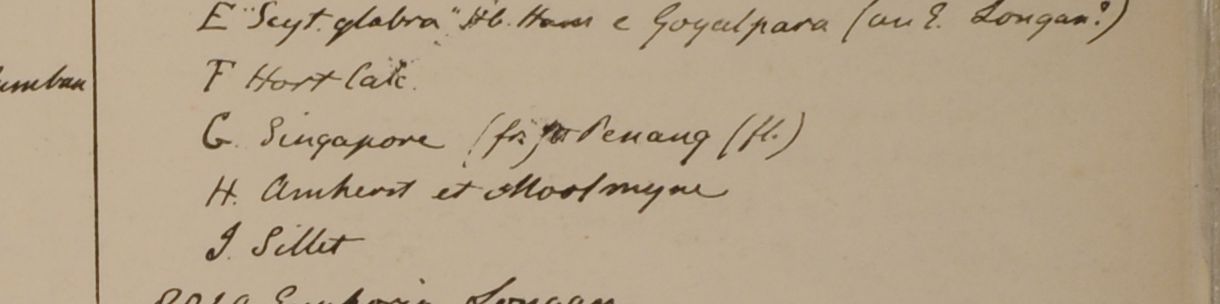 E "Scyt. glabra" Hb. Ham e Goyalpara (an E. Longan?)
F Hort Calc.
umbau
G. Singapore (fr.) Penang (fl.)
H. Amherst et Moolmyne
J. Sillet
Euphoria Longan